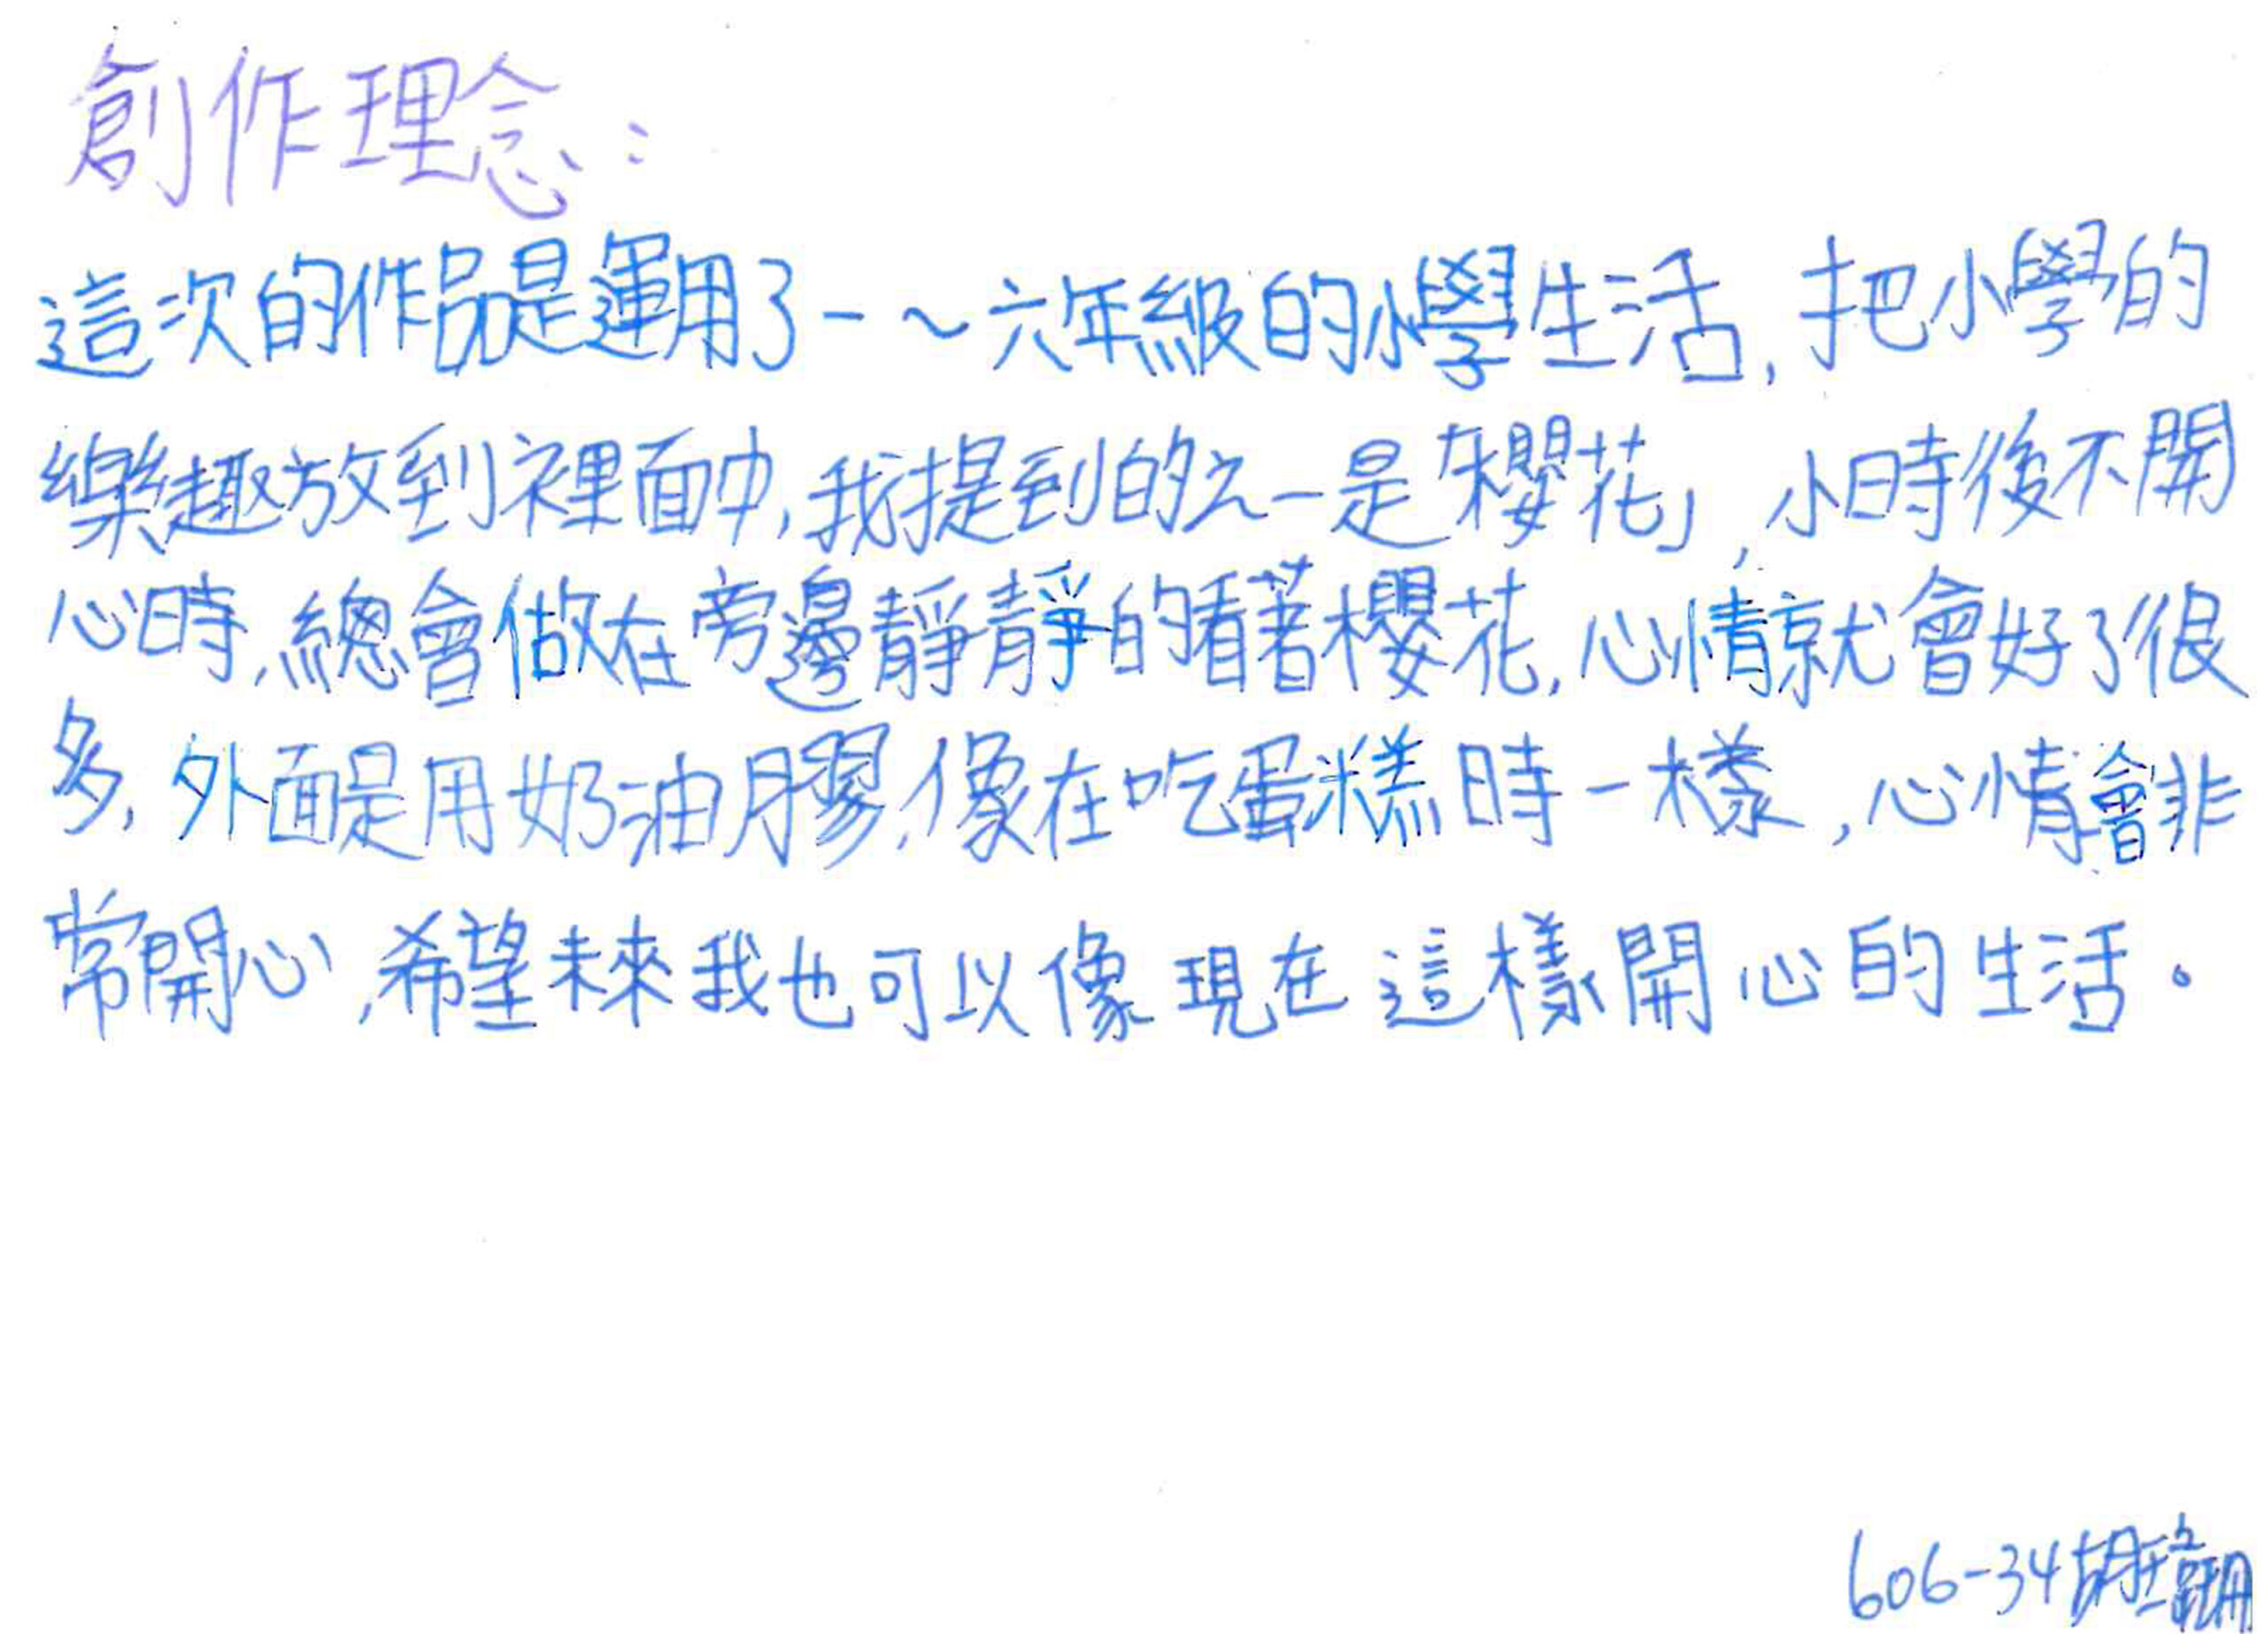 創作理念：
這次的作品是運用了一～六年級的小學生活，把小學的
樂趣放到裡面中，我提到的之一是「櫻花」，小時後不開
心時，總會做在旁邊靜靜的看著櫻花，心情就會好了很
多，外面是用奶油膠，像在吃蛋糕時一樣，心情會非
常開心，希望未來我也可以像現在這樣開心的生活。
606-34胡